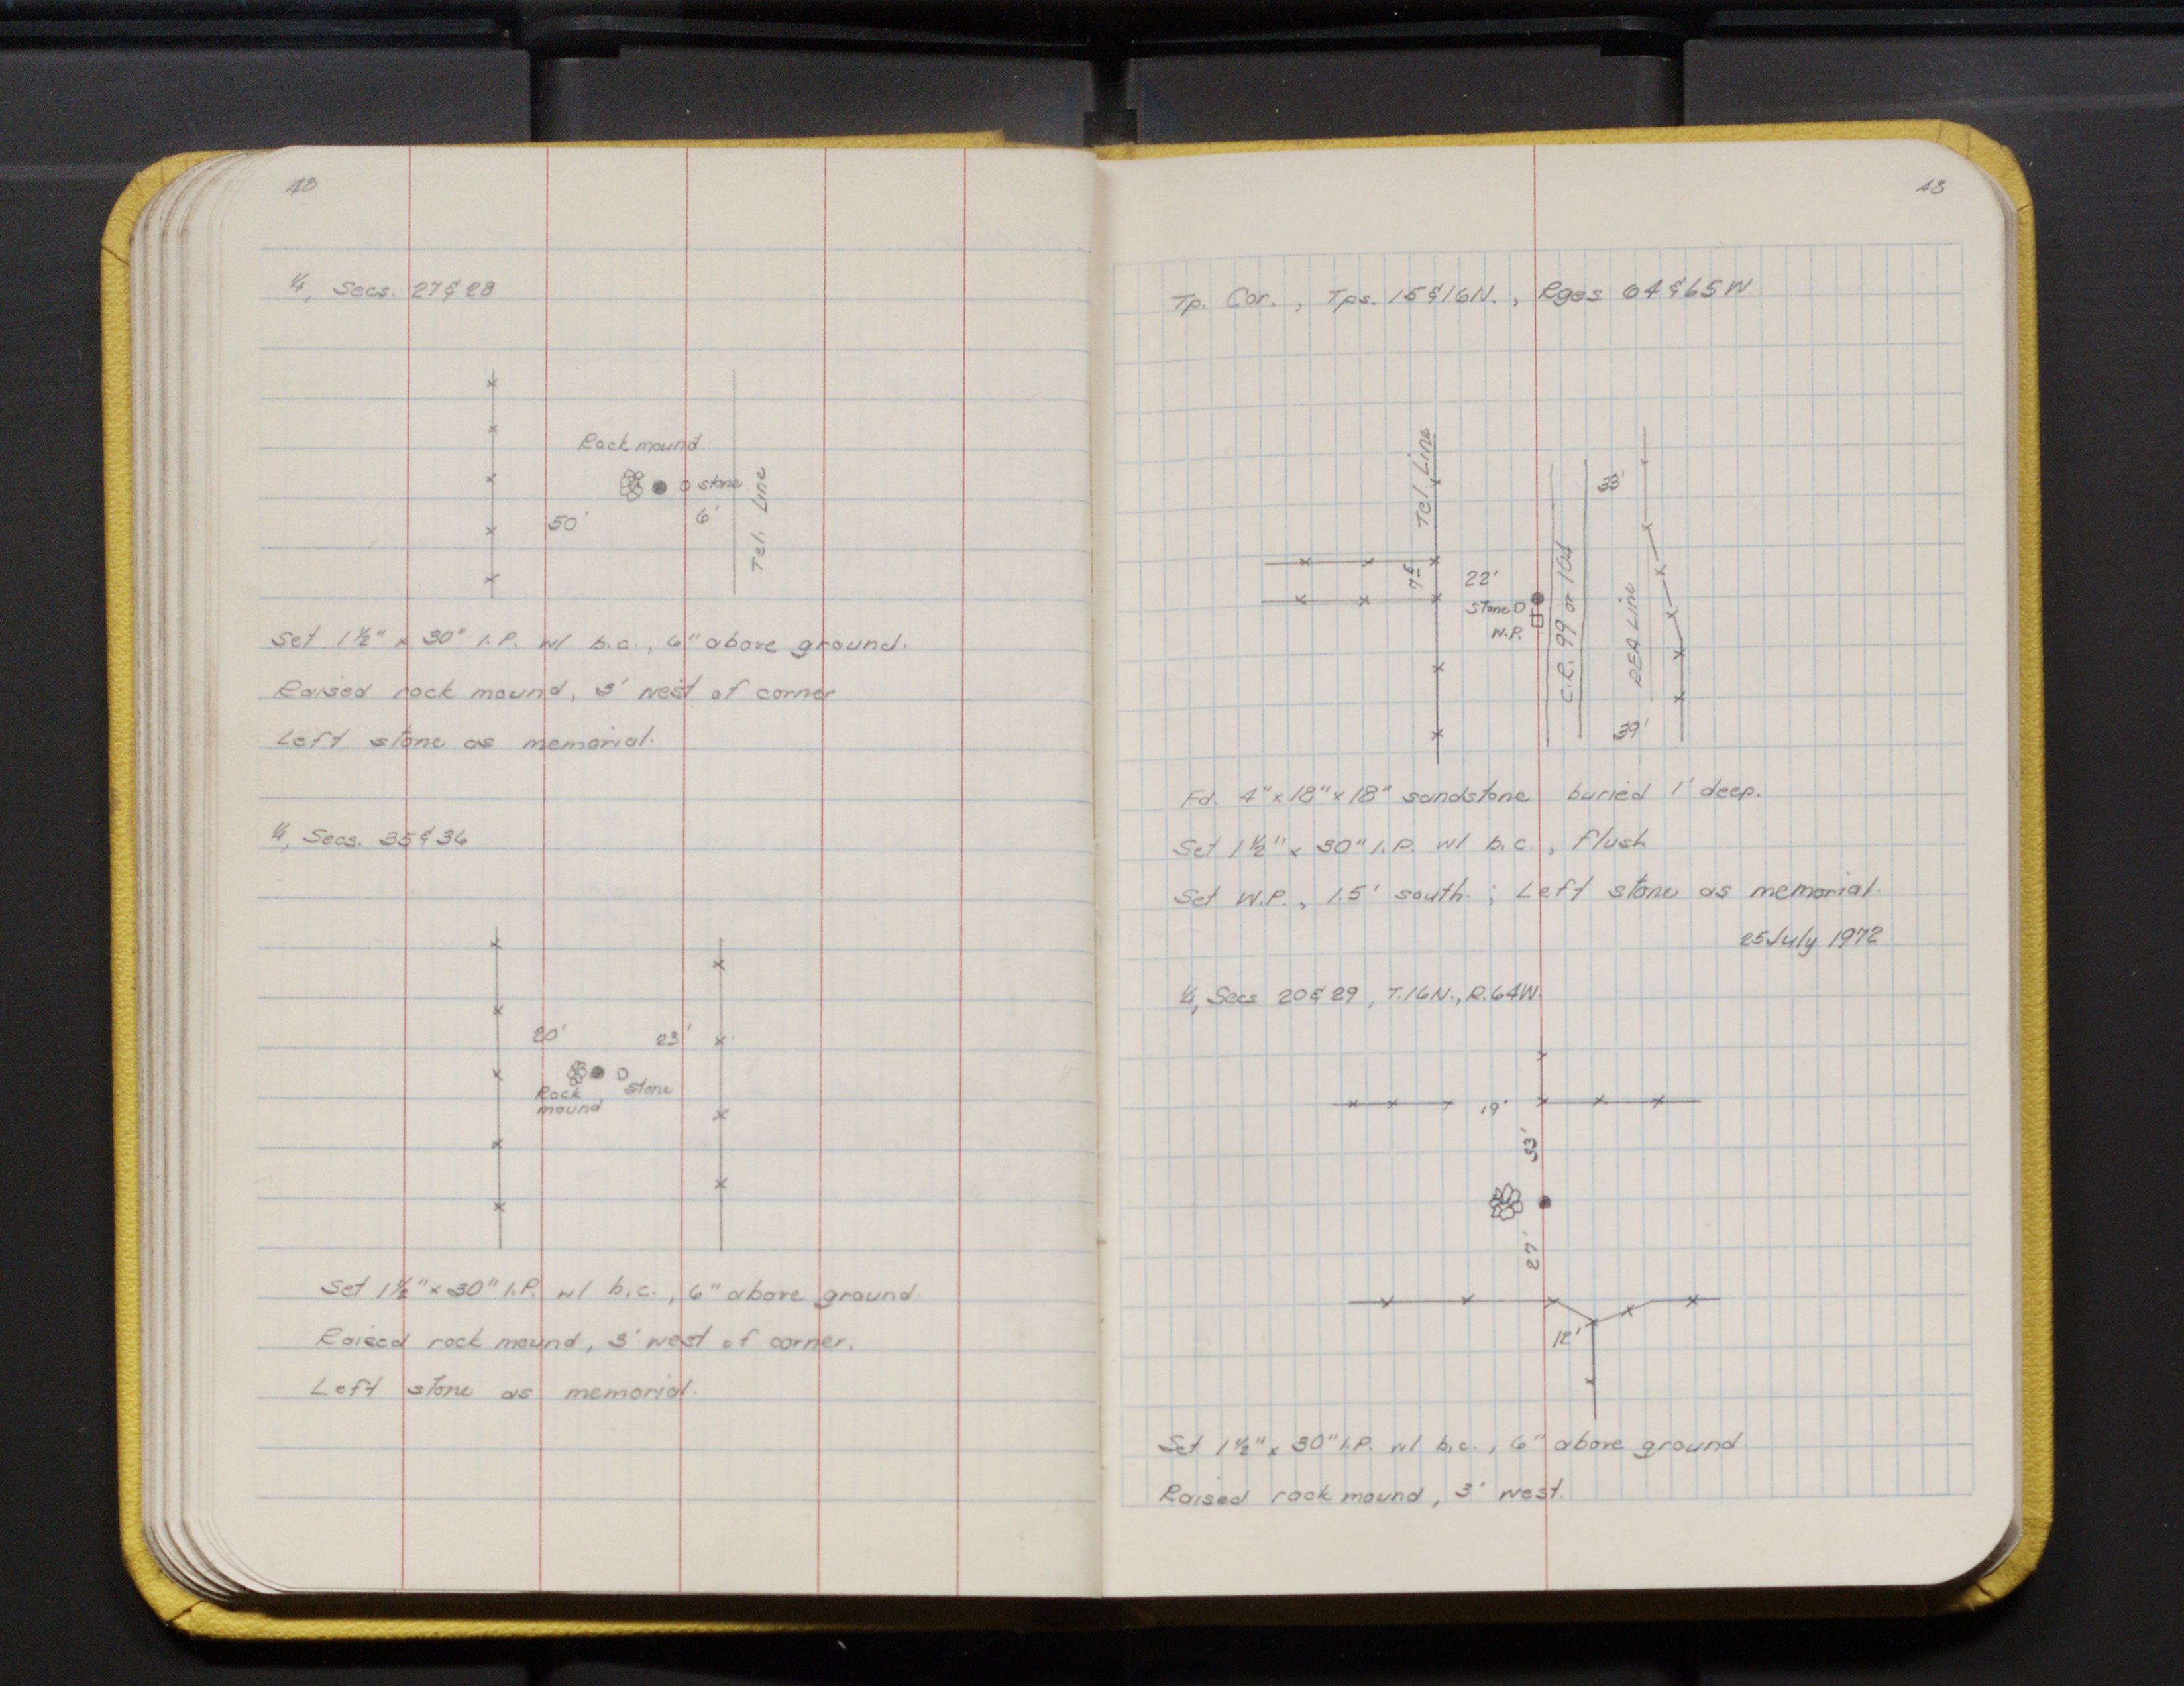 48
1/4, Secs. 27 & 28
Rock mound
stone
50'
6'
Tel. Line
Set 1 1/2" x 30" I.P. w/ b.c., 6" above ground.
Raised rock mound, 3' west of corner
Left stone as memorial.
1/4, Secs. 35 & 36
20' 23'
Rock
mound
stone
Set 1 1/2" x 30" I.P. w/ b.c., 6" above ground
Raised rock mound, 3' west of corner.
Left stone as memorial.
48
Tp. Cor., Tps. 15 & 16N., Rges. 64 & 65W
Tel. Line
33'
22'
Stone
W.P.
C.R. 99 or 104
REA Line
39'
Fd. 4" x 18" x 18" sandstone buried 1' deep.
Set 1 1/2" x 30" I.P. w/ b.c., flush
Set W.P., 1.5' south.; Left stone as memorial.
25 July 1972
1/4, Secs 20 & 29, T.16N., R.64W.
19'
33'
27'
12'
Set 1 1/2" x 30" I.P. w/ b.c., 6" above ground
Raised rock mound, 3' west.